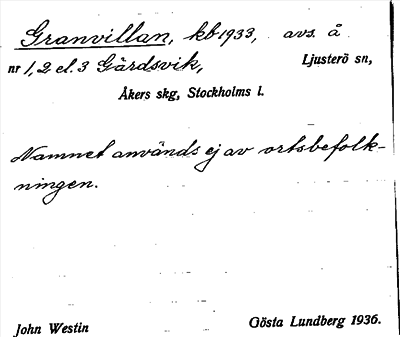 Granvillan, kb 1933, avs. å
nr 1, 2 el. 3 Gärdsvik, Ljusterö sn,
Åkers skg, Stockholms l.
Namnet används ej av ortsbefolk-
ningen.
John Westin Gösta Lundberg 1936.